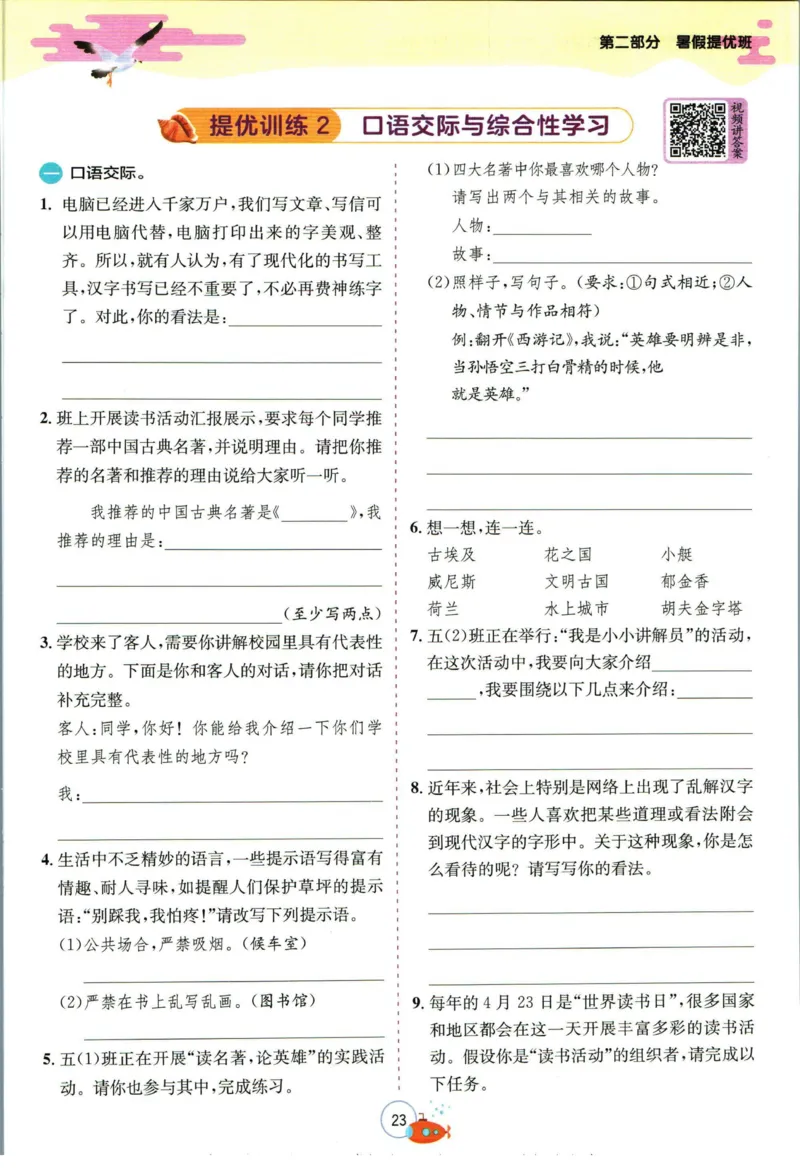 第二部分 暑假提优班
提优训练2 口语交际与综合性学习
视频讲答案
一 口语交际。
1. 电脑已经进入千家万户,我们写文章、写信可
以用电脑代替,电脑打印出来的字美观、整
齐。所以,就有人认为,有了现代化的书写工
具,汉字书写已经不重要了,不必再费神练字
了。对此,你的看法是:
2. 班上开展读书活动汇报展示,要求每个同学推
荐一部中国古典名著,并说明理由。请把你推
荐的名著和推荐的理由说给大家听一听。
我推荐的中国古典名著是《________》,我
推荐的理由是:
(至少写两点)
3. 学校来了客人,需要你讲解校园里具有代表性
的地方。下面是你和客人的对话,请你把对话
补充完整。
客人:同学,你好!你能给我介绍一下你们学
校里具有代表性的地方吗?
我:
4. 生活中不乏精妙的语言,一些提示语写得富有
情趣、耐人寻味,如提醒人们保护草坪的提示
语:“别踩我,我怕疼!”请改写下列提示语。
(1)公共场合,严禁吸烟。(候车室)
(2)严禁在书上乱写乱画。(图书馆)
5. 五(1)班正在开展“读名著,论英雄”的实践活
动。请你也参与其中,完成练习。
(1)四大名著中你最喜欢哪个人物?
请写出两个与其相关的故事。
人物:
故事:
(2)照样子,写句子。(要求:①句式相近;②人
物、情节与作品相符)
例:翻开《西游记》,我说:“英雄要明辨是非,
当孙悟空三打白骨精的时候,他
就是英雄。”
6. 想一想,连一连。
古埃及 花之国 小艇
威尼斯 文明古国 郁金香
荷兰 水上城市 胡夫金字塔
7. 五(2)班正在举行:“我是小小讲解员”的活动,
在这次活动中,我要向大家介绍
,我要围绕以下几点来介绍:
8. 近年来,社会上特别是网络上出现了乱解汉字
的现象。一些人喜欢把某些道理或看法附会
到现代汉字的字形中。关于这种现象,你是怎
么看待的呢?请写写你的看法。
9. 每年的4月23日是“世界读书日”,很多国家
和地区都会在这一天开展丰富多彩的读书活
动。假设你是“读书活动”的组织者,请完成以
下任务。
23